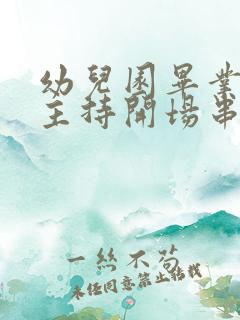 幼兒園畢業
主持開場串
一絲不苟
未經同意禁止搭載